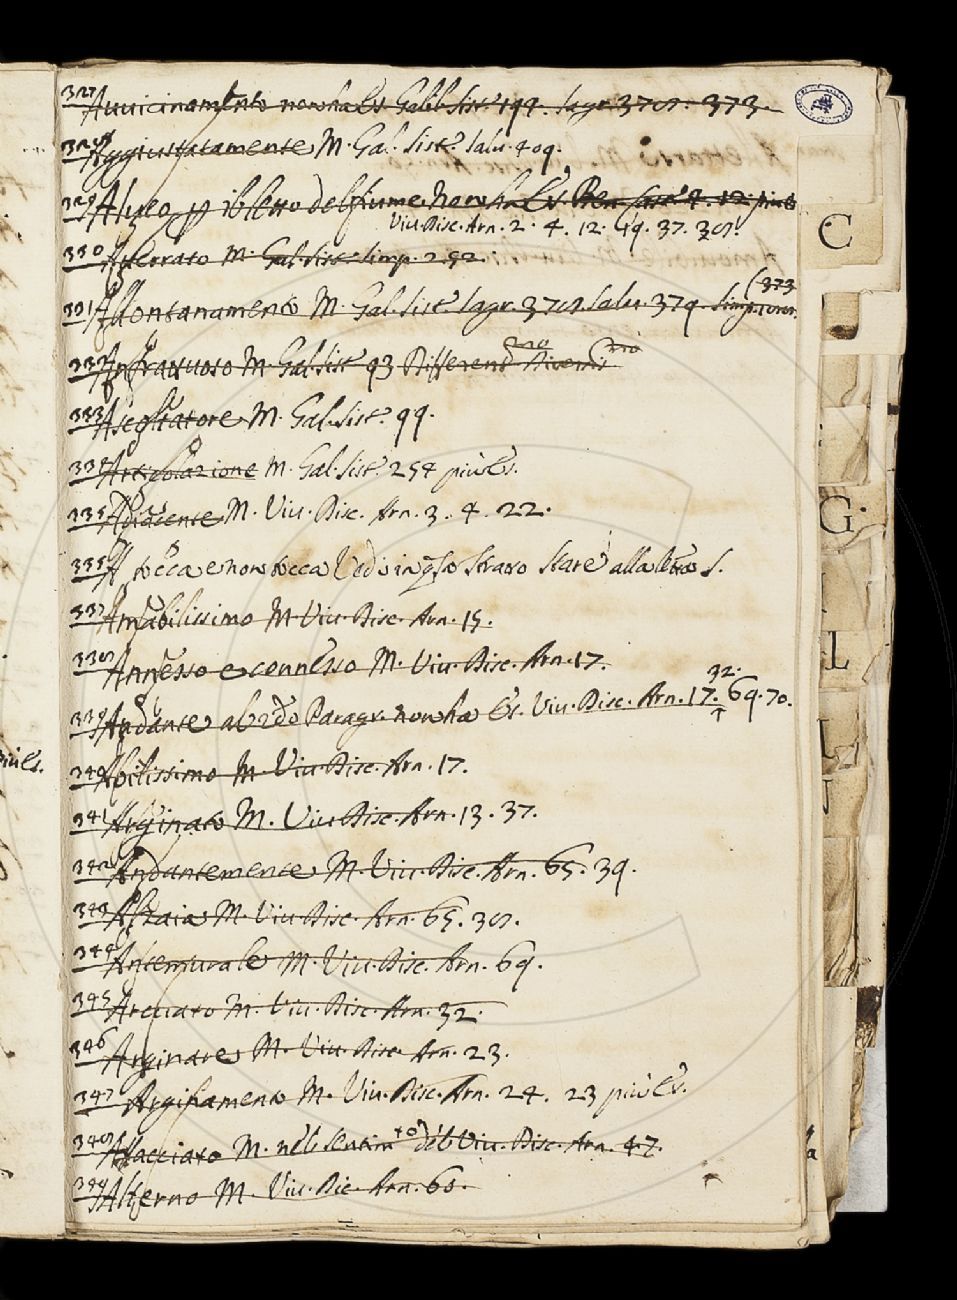 327 Auuicinamento non ha Es. Galil. Sist. 199. Sagr. 378. 373.
328 Aggiustatamente M. Gal. Sist. Salu. 409.
329 Alueo p il letto del fiume non ha Es.
Viu. Disc. Arn. 2. 4. 12. 19. 37. 38.
330 Atterrato M. Gal. Sist. Simp. 252.
331 Allontanamento M. Gal. Sist. Sagr. 378. Salu. 379. Simp.
(373
332 Anfrattuoso M. Gal. Sist. 93 Different Diversis
333 Ascoltatore M. Gal. Sist. 99.
334 M. Gal. Sist. 254 più Es.
335 Adiacente M. Viu. Disc. Arn. 3. 4. 22.
336 A tocca e non tocca Vedi in qsto Stratto Stare alla Lra S.
337 Amabilissimo M Viu. Disc. Arn. 15.
338 Annesso e connesso M. Viu. Disc. Arn. 17.
32.
339 Andante al 2do Paragr. non ha Es. Viu. Disc. Arn. 17. 69. 70.
340 Abilissimo M. Viu. Disc. Arn. 17.
341 Arginato M. Viu. Disc. Arn. 13. 37.
342 Andantemente M. Viu. Disc. Arn. 65. 39.
343 Alzaia M. Viu. Disc. Arn. 65. 38.
344 Antemurale M. Viu. Disc. Arn. 69.
345 M. Viu. Disc. Arn. 32.
346 Arginare M. Viu. Disc. Arn. 23.
347 M. Viu. Disc. Arn. 24. 23 più Es.
348 Allacciato M. nel sentimto del Viu. Disc. Arn. 47.
349 Alterno M. Viu. Dic. Arn. 60.
più Es.
C
G.
L